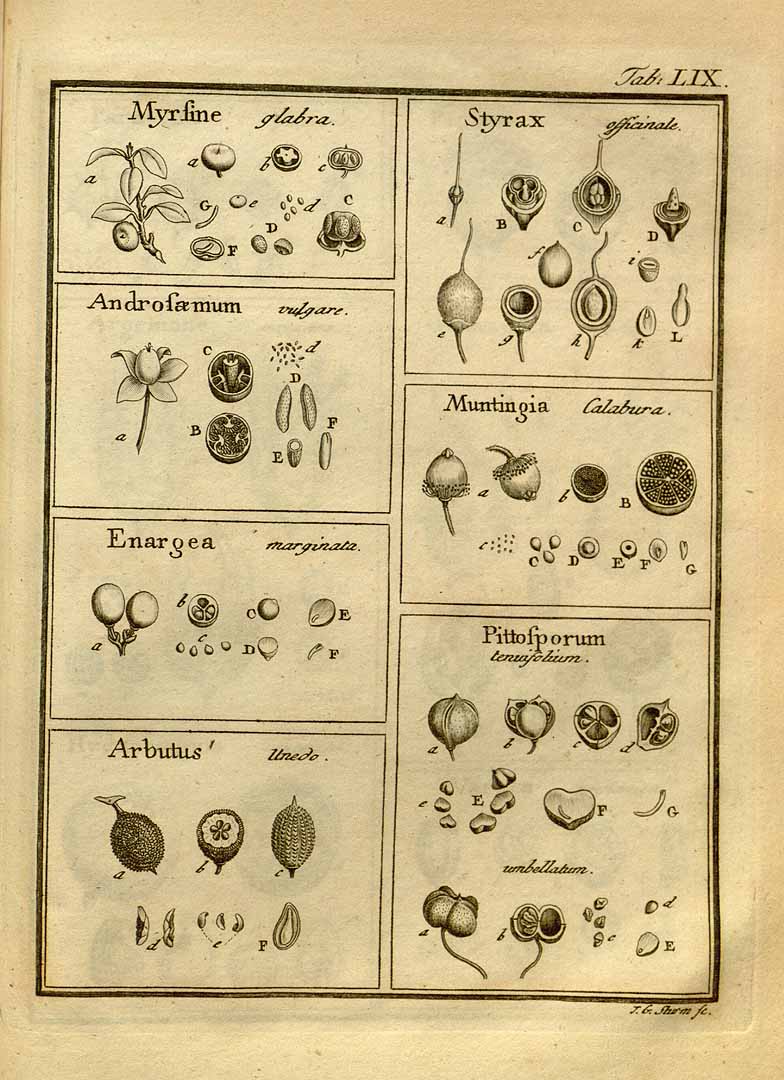 Tab: LIX.
Myrſine glabra.
a a b c
G e d C
F D
Androſæmum vulgare.
C d
D
a B F
E
Enargea marginata.
b C E
a c D F
Arbutus Unedo.
a b c
d e F
Styrax officinale.
a B C D
f i
e g h k L
Muntingia Calabura.
a b B
c C D E F G
Pittoſporum
tenuifolium.
a b c d
e E F G
umbellatum.
a b c d
E
J. G. Sturm ſc.